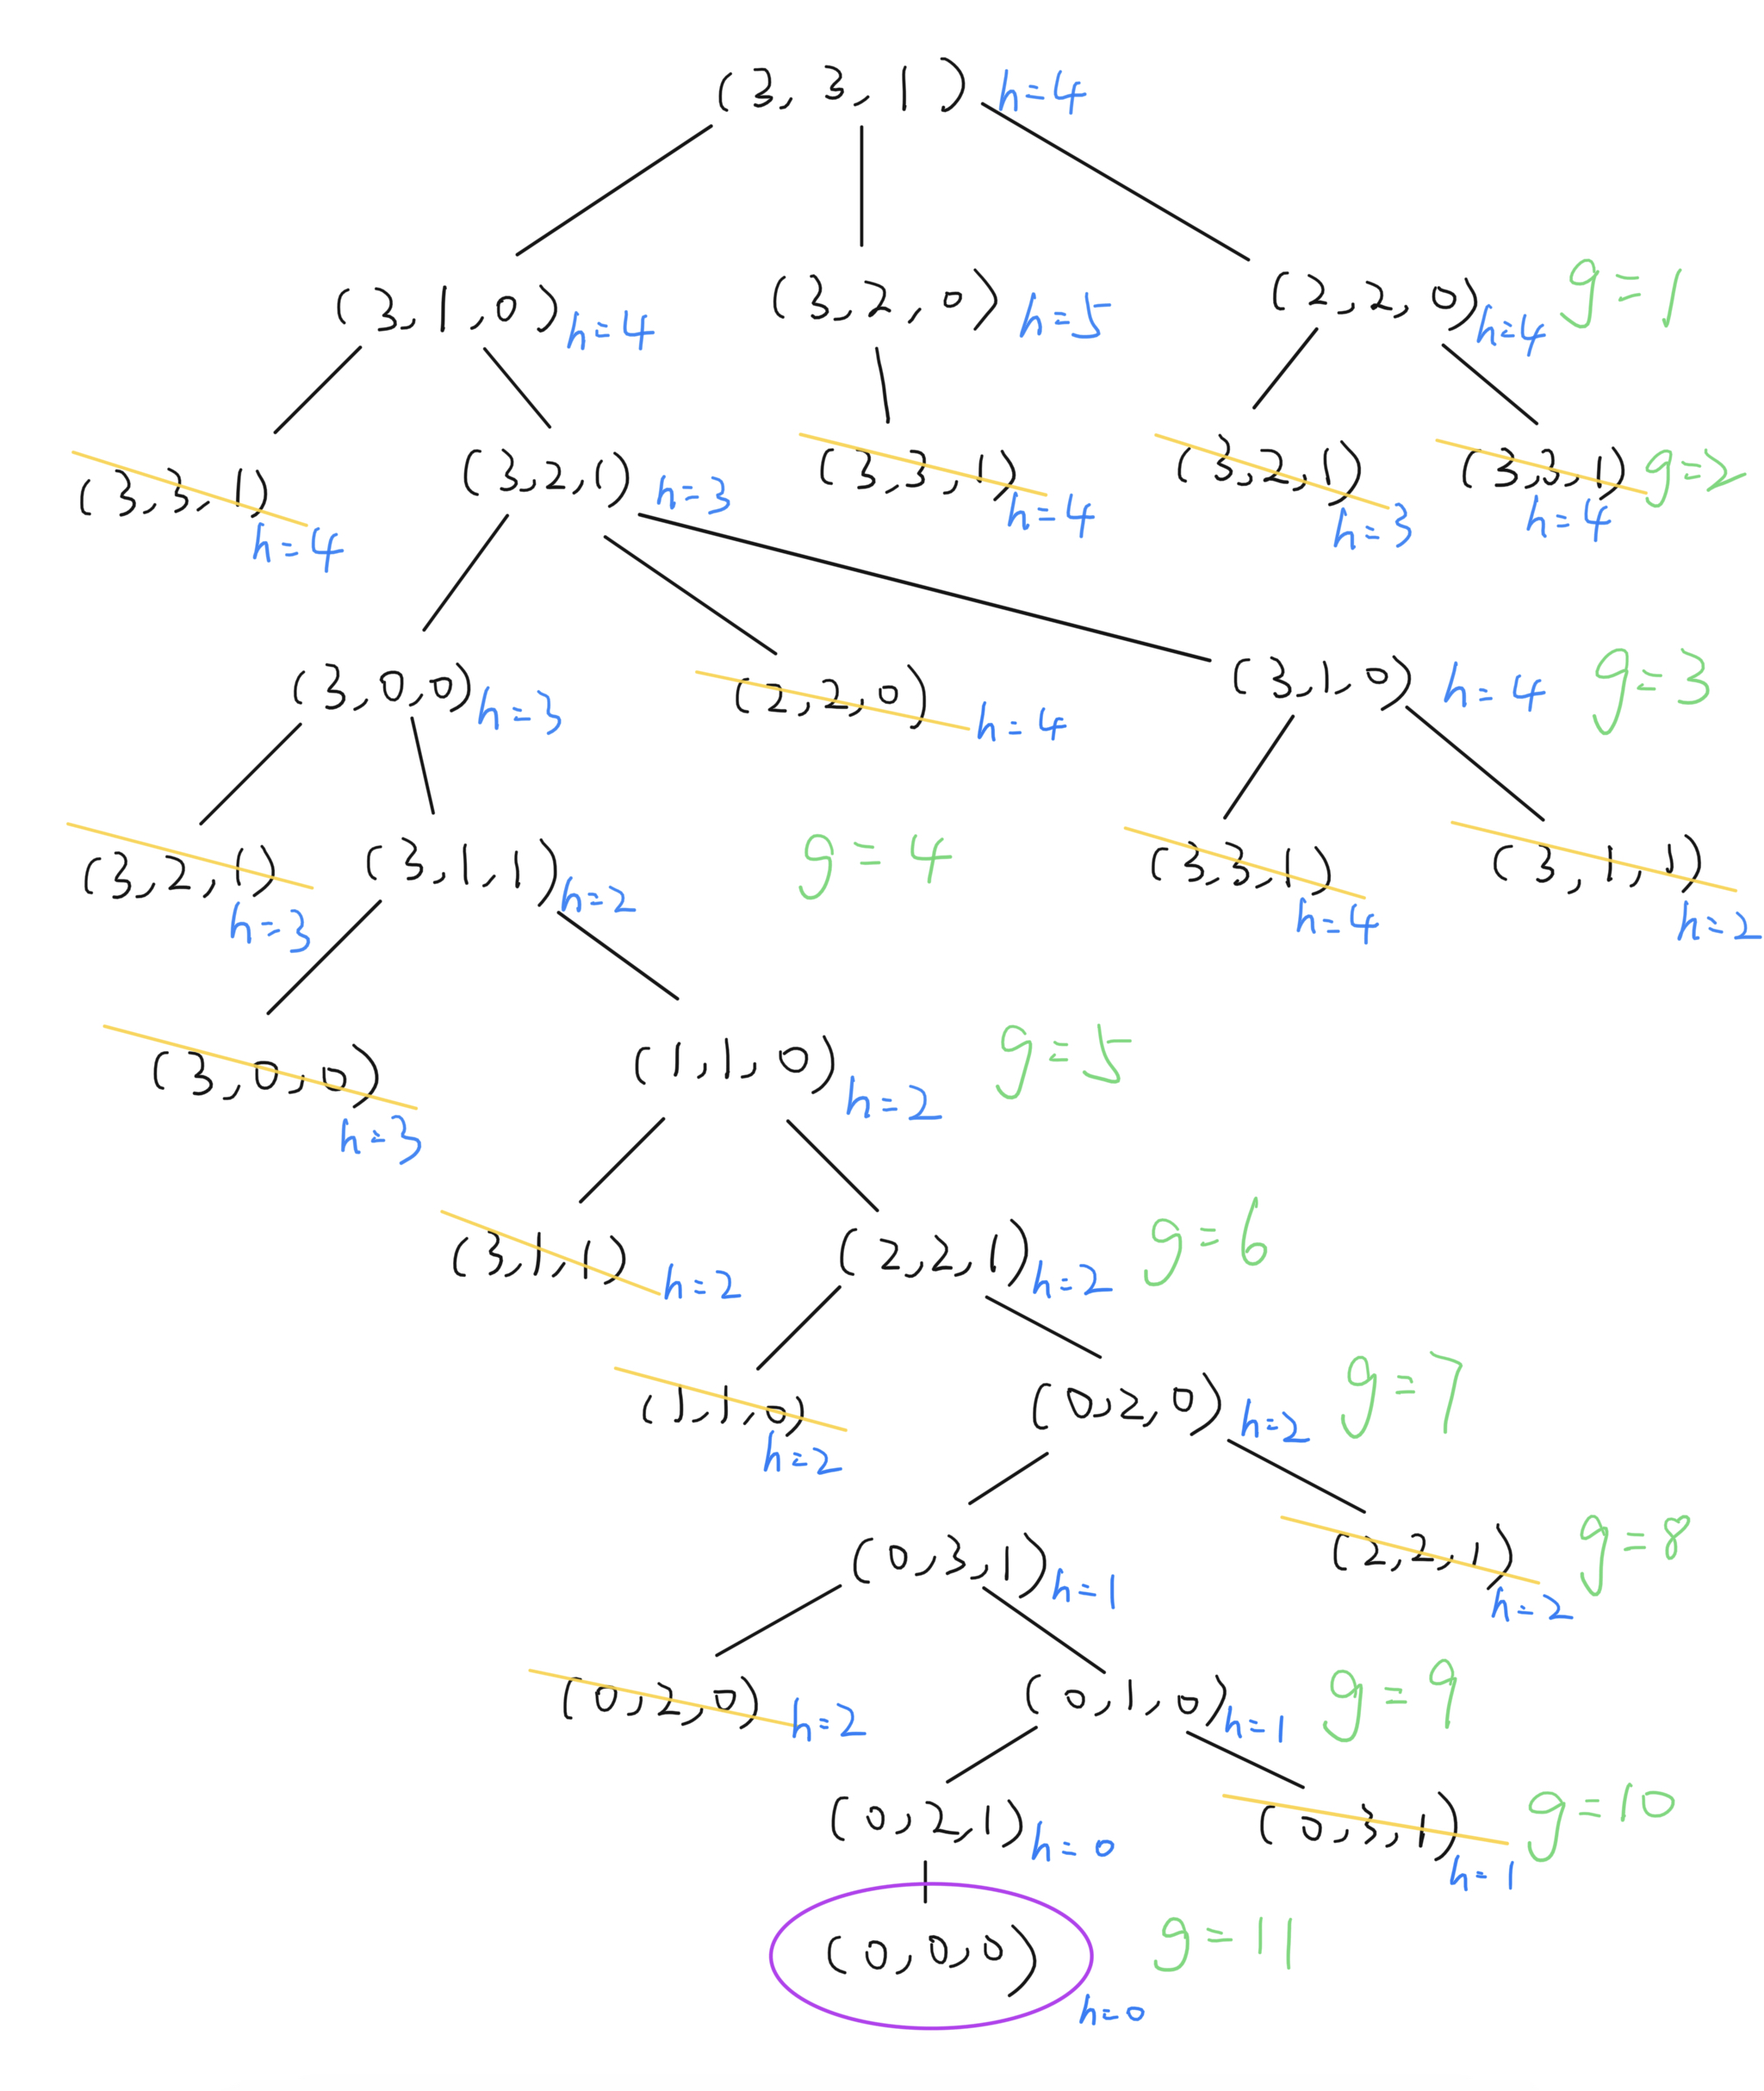 (3, 3, 1) h=4
(3,1,0) h=4 (3,2,0) h=5 (2,2,0) h=4 g=1
(3,3,1) h=4 (3,2,1) h=3 (3,3,1) h=4 (3,2,1) h=3 (3,3,1) h=4 g=2
(3,0,0) h=3 (2,2,0) h=4 (3,1,0) h=4 g=3
(3,2,1) h=3 (3,1,1) h=2 g=4 (3,3,1) h=4 (3,1,1) h=2
(3,0,0) h=3 (1,1,0) h=2 g=5
(3,1,1) h=2 (2,2,1) h=2 g=6
(1,1,0) h=2 (0,2,0) h=2 g=7
(0,3,1) h=1 (2,2,1) h=2 g=8
(0,2,0) h=2 (0,1,0) h=1 g=9
(0,2,1) h=0 (0,3,1) h=1 g=10
(0,0,0) h=0 g=11